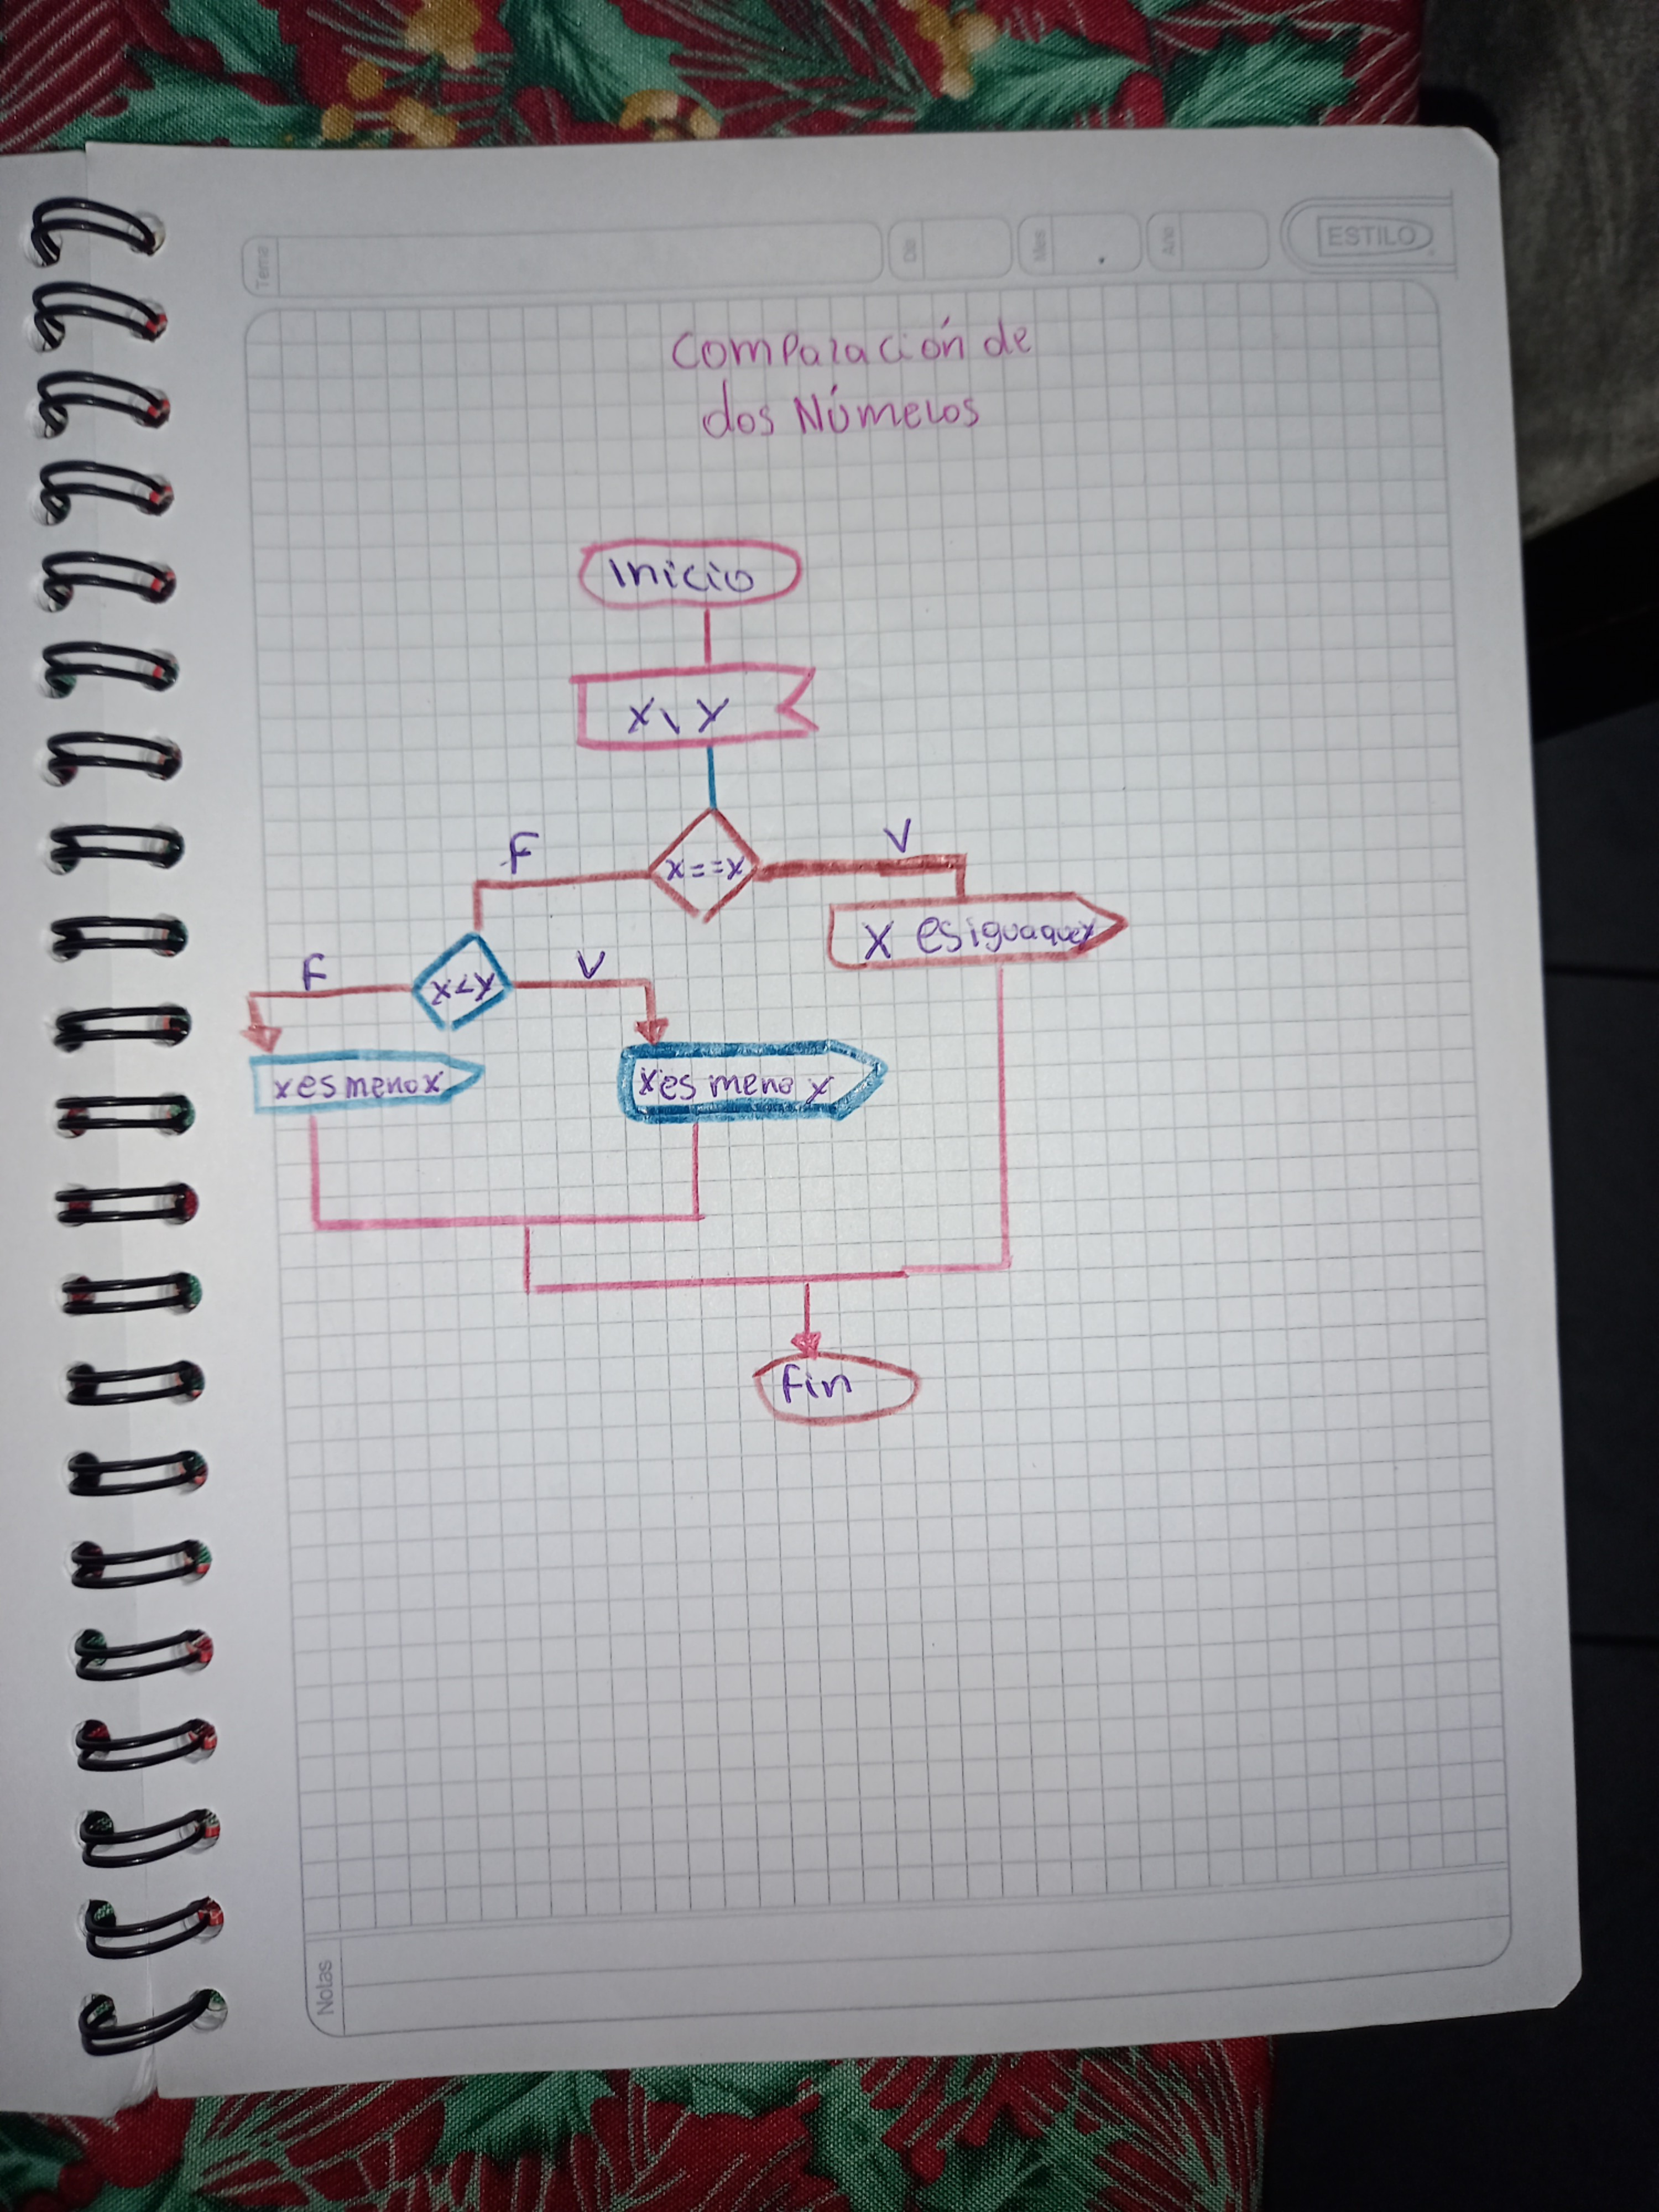 Tema
Dia
Mes
Año
ESTILO
Comparación de
dos Números
Inicio
x, y
F
x==y
V
x es iguaque y
F
x<y
V
x es meno x
x es meno y
Fin
Notas